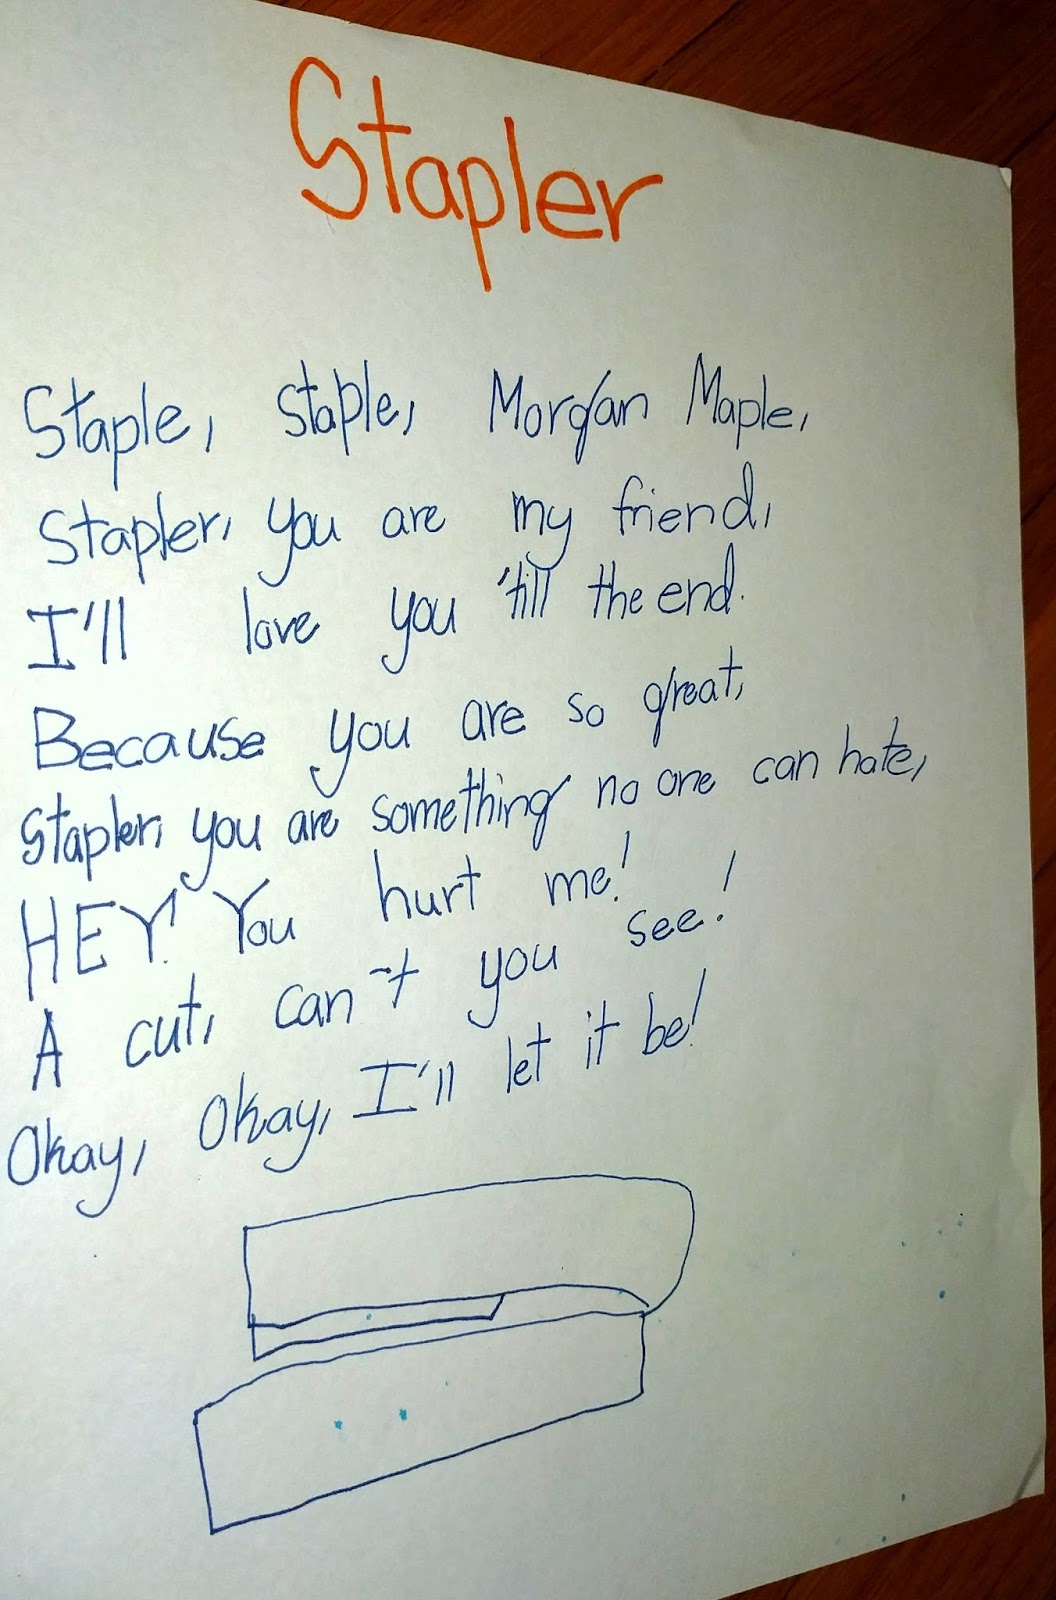 Stapler
Staple, staple, Morgan Maple,
Stapler, you are my friend,
I'll love you 'till the end.
Because you are so great,
Stapler, you are something no one can hate,
HEY! You hurt me!
A cut, can't you see!
Okay, Okay, I'll let it be!